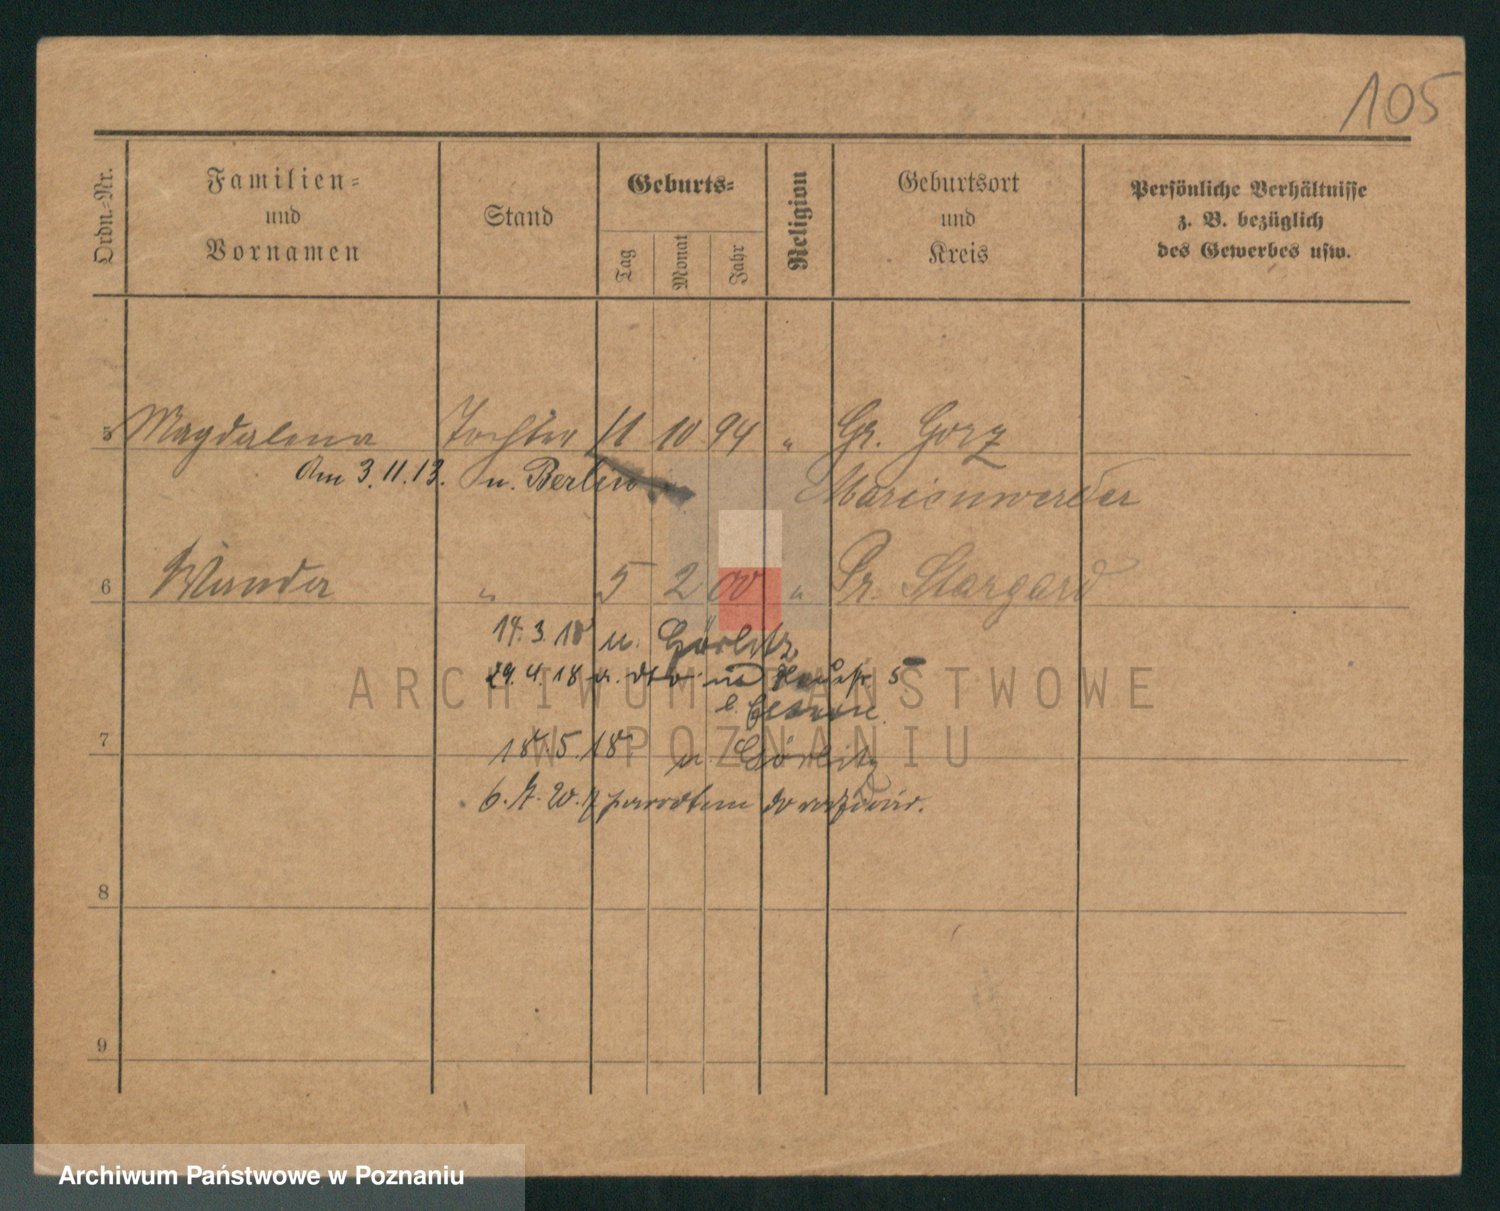 105
Ordn.-Nr.
Familien-
und
Vornamen
Stand
Geburts-
Tag
Monat
Jahr
Religion
Geburtsort
und
Kreis
Persönliche Verhältnisse
z. B. bezüglich
des Gewerbes usw.
5 Magdalena Tochter 11 10 94 " Gr. Gorz
Am 3.11.13. n. Berlin Marienwerder
6 Wanda " 5 2 00 " Pr. Stargard
14.3.18 n. Görlitz
29.4.18 v. dto 5
7 18.5.18. n. Görlitz
8
9
ARCHIWUM PAŃSTWOWE
W POZNANIU
Archiwum Państwowe w Poznaniu